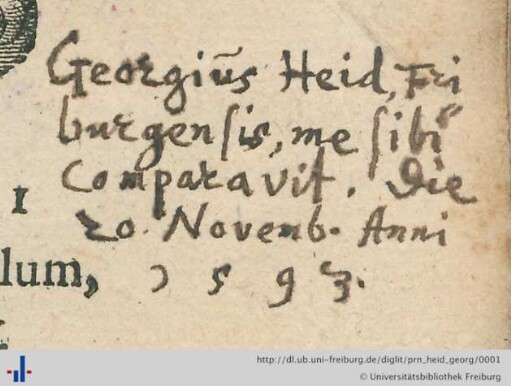 Georgiūs Heid, Fri
burgensis, me sibi
comparavit. Die
20. Novenb. Anni
I
lum,
1593.
http://dl.ub.uni-freiburg.de/diglit/prn_heid_georg/0001
© Universitätsbibliothek Freiburg